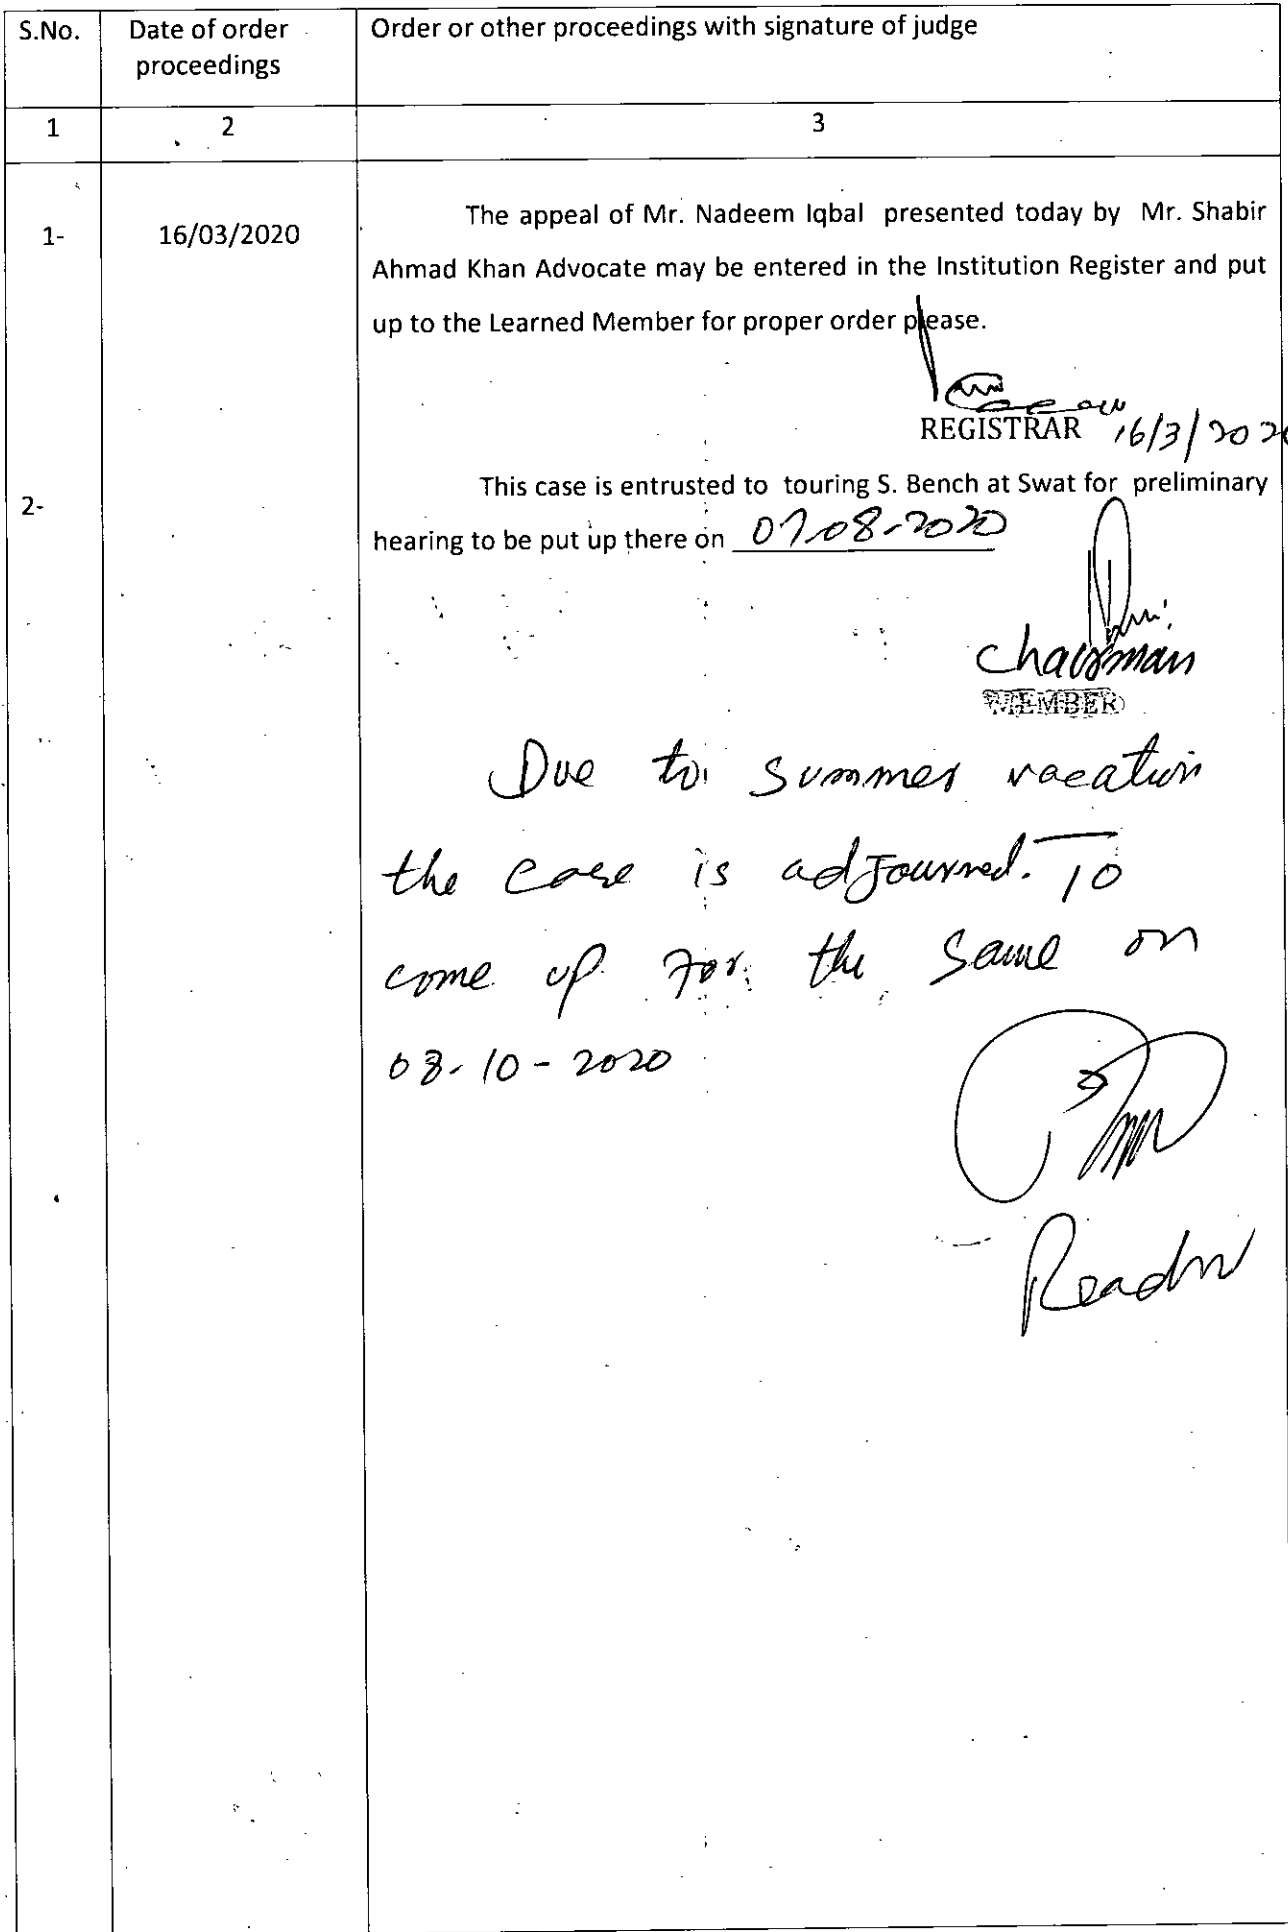 S.No.
Date of order
proceedings
Order or other proceedings with signature of judge
1
2
3
1-
16/03/2020
The appeal of Mr. Nadeem Iqbal presented today by Mr. Shabir
Ahmad Khan Advocate may be entered in the Institution Register and put
up to the Learned Member for proper order please.
REGISTRAR 16/3/2020
2-
This case is entrusted to touring S. Bench at Swat for preliminary
hearing to be put up there on 07-08-2020
Chairman
MEMBER
Due to summer vacation
the case is adjourned. To
come up for the same on
08-10-2020
Reader